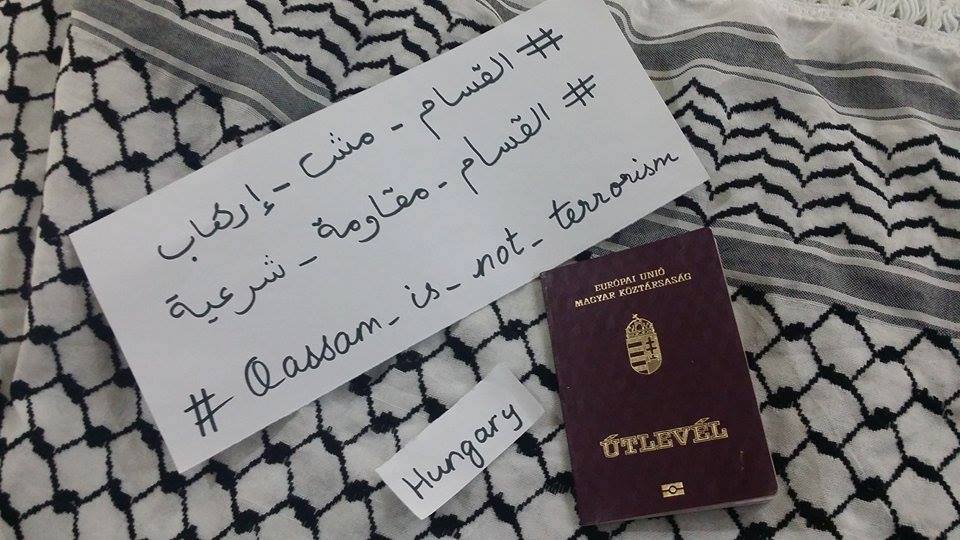 # القسام - مش - إرهاب
# القسام - مقاومة - شرعية
# Qassam_is_not_terrorism
Hungary
EURÓPAI UNIÓ
MAGYAR KÖZTÁRSASÁG
ÚTLEVÉL